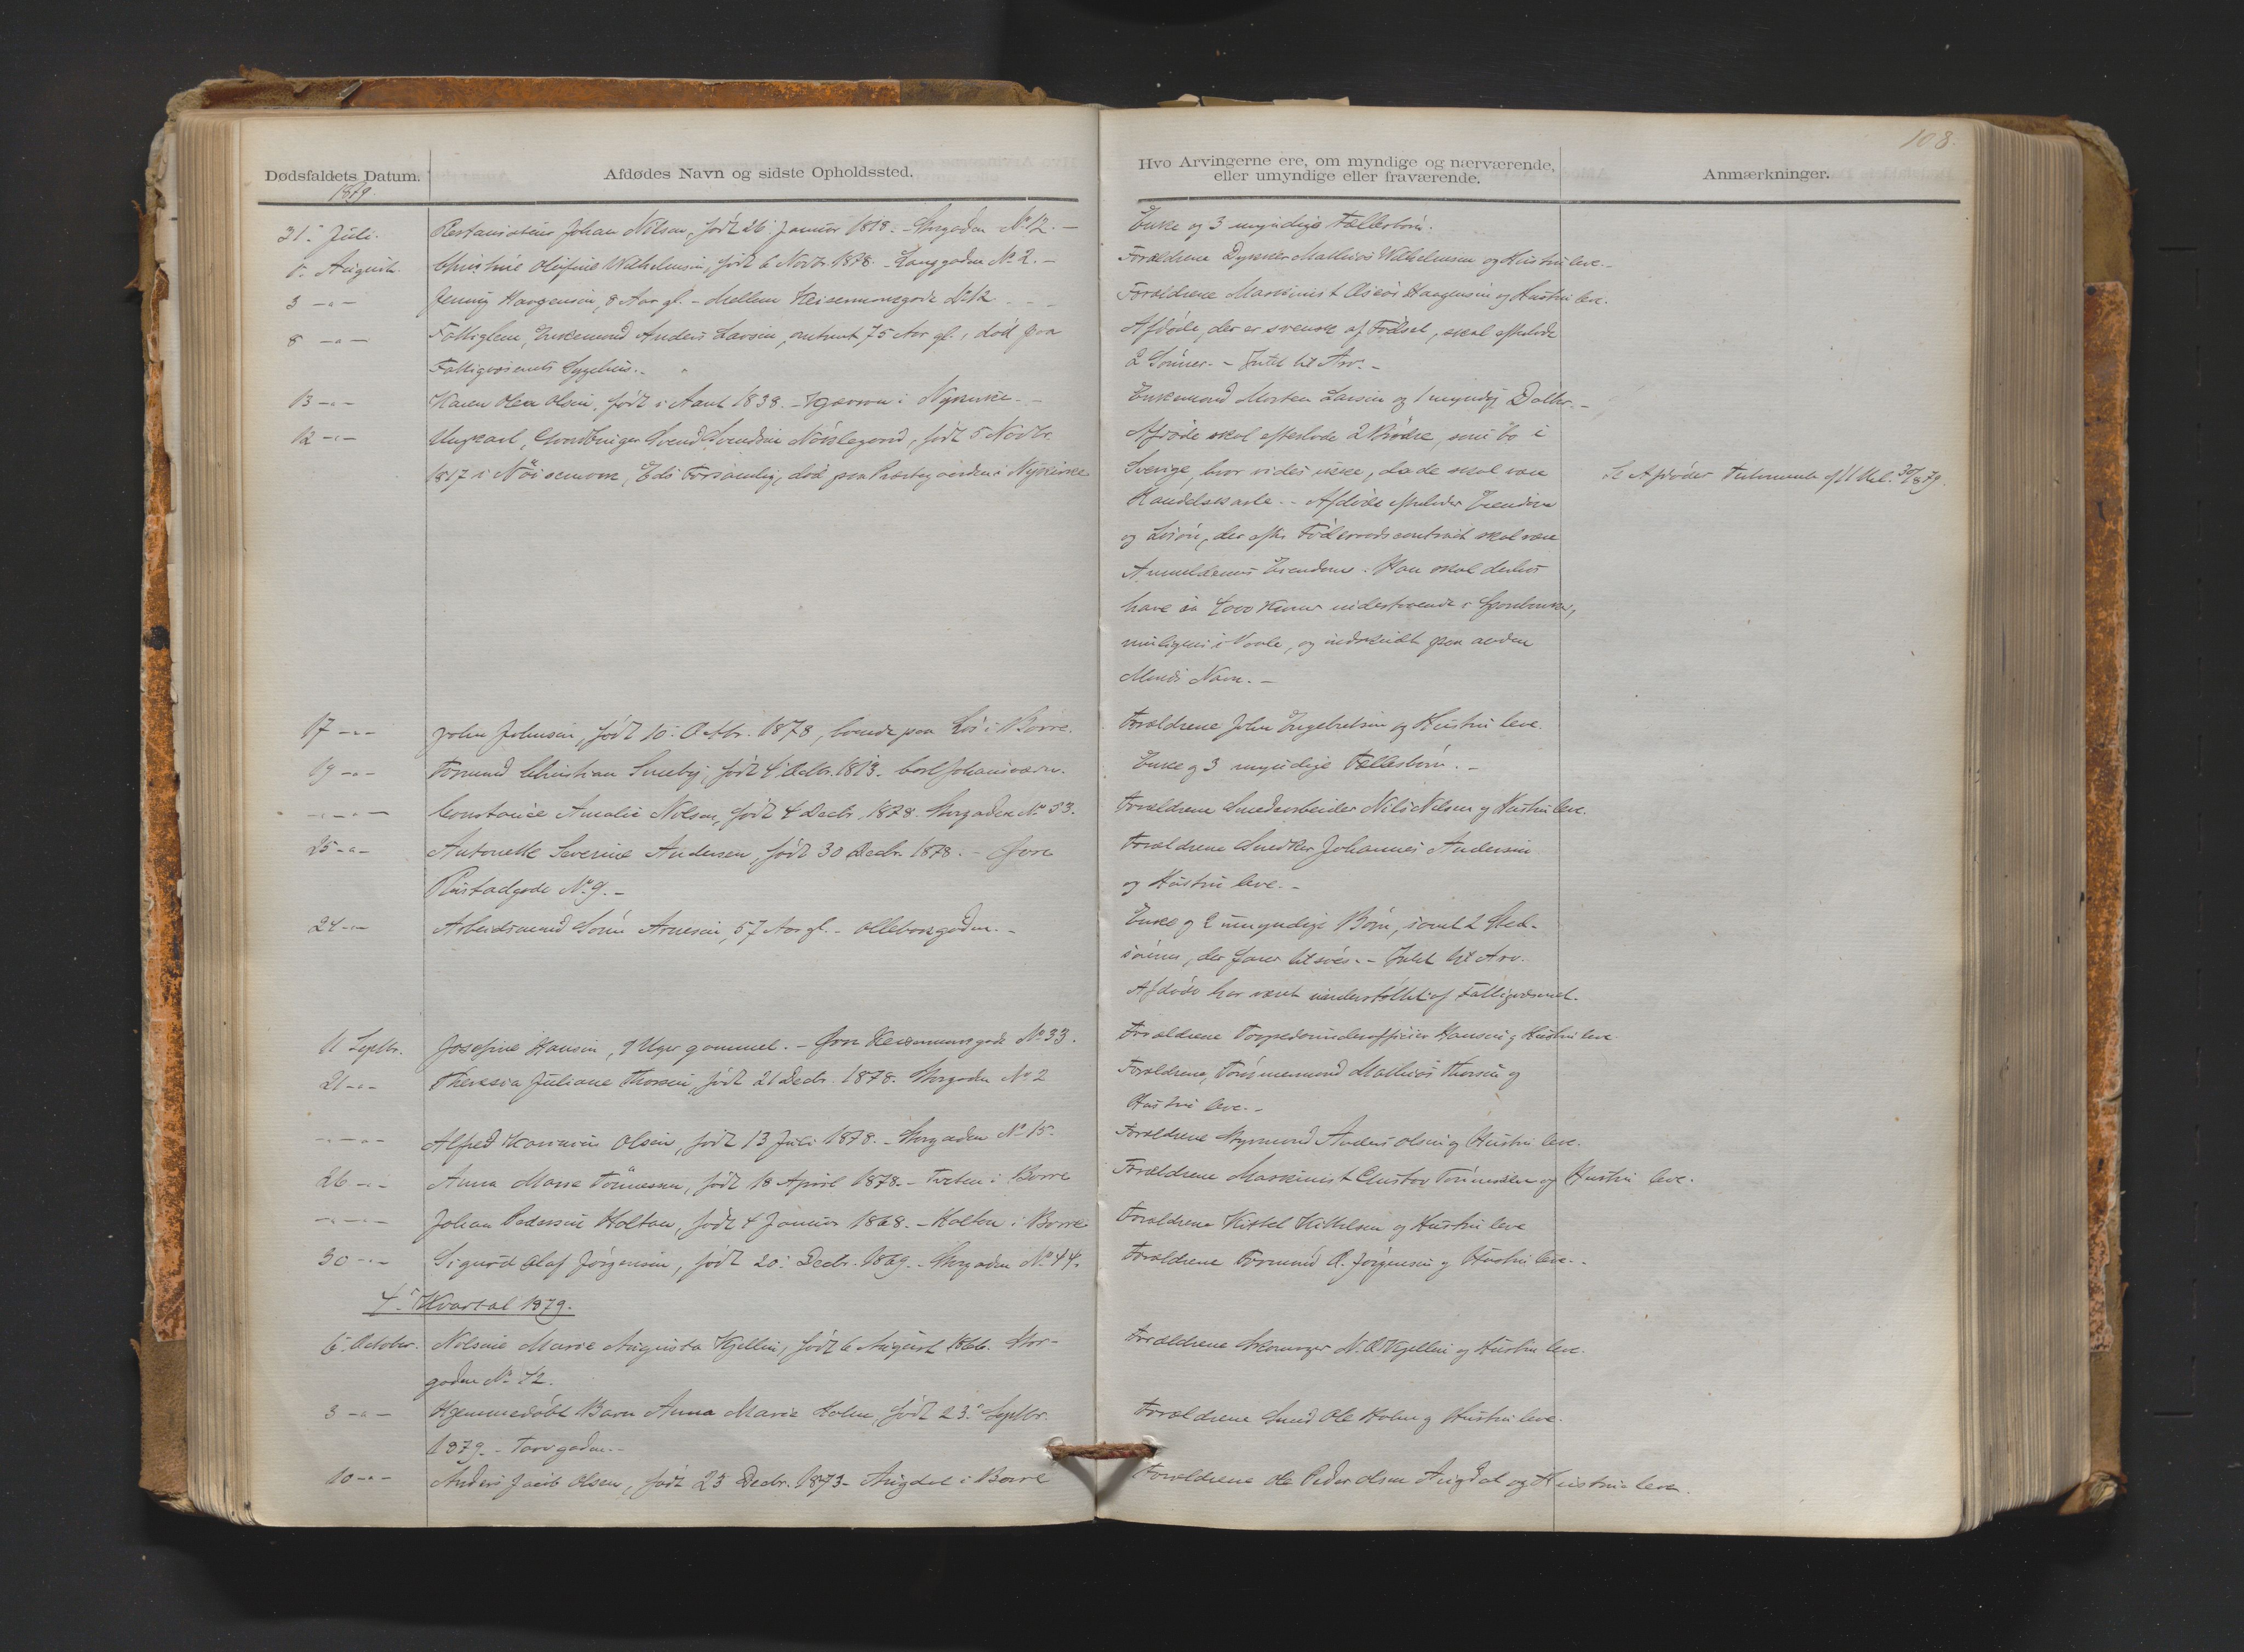 108.
Dødsfaldets Datum.
1879.
Afdødes Navn og sidste Opholdssted.
Hvo Arvingerne ere, om myndige og nærværende,
eller umyndige eller fraværende.
Anmærkninger.
31. Juli.
Restaurateur Johan Nilsen, født 26 Januar 1818. - Storgaden No 12. -
Enke og 3 myndige Fællesbørn.
1. August.
Christine Olufine Wilhelmsen, født 6 Novbr. 1878. - Langgaden No 2. -
Forældrene Dykker Mathias Wilhelmsen og Hustru leve. -
3 -"-
Jenny Haagensen, 8 Aar gl. - Mellem Keisemarksgade No 12
Forældrene Maskinist Haagensen og Hustru leve.
8 -"-
Fattiglem, Enkemand Anders Larsen, omtrent 75 Aar gl., død paa
Fattigvæsenets Sygehus. -
Afdøde, der er svensk af Fødsel, skal efterlade
2 Sønner. - Intet til Arv. -
13 -"-
Karen Olea Olsen, født i Aaret 1838. - i Nykirke. -
Enkemand Morten Larsen og 1 myndig Datter. -
12 -"-
Ungkarl, Svend Svendsen født 5 Novbr.
1817 i Eds Forsamling, død paa Præstegaarden i Nykirke
Afdøde skal efterlade 2 Brødre, som bo i
Sverige, hvor vides ikke, da de skal være
Handelskarle. - Afdøde efterlader Eiendom
og Løsøre, der efter Føderaadscontract skal være
Anmelderens Eiendom. Han skal derhos
have ca 4000 Kroner indestaaende i Sparebanker,
muligens i Vaale, og indskudt paa anden
Mands Navn. -
Se Afdødes Testamente 30/8 79.
17 -"-
John Johnsen, født 10. Octbr. 1878, boende paa Løs i Borre.
Forældrene John Engebretsen og Hustru leve.
19 -"-
Formand Christian Sneby, født 4 Octbr. 1813. Carljohansværn.
Enke og 3 myndige Fællesbørn. -
-"-"-
Constance Amalie Nilsen, født 4 Decbr. 1878. Storgaden No 53.
Forældrene Smedearbeider Nils Nilsen og Hustru leve.
25 -"-
Antonette Severine Andersen, født 30 Decbr. 1878. - Øvre
Rustadgade No 9. -
Forældrene Snedker Johannes Andersen
og Hustru leve. -
24 -"-
Arbeidsmand Søren Arnesen, 57 Aar gl. - Ollebakgaden. -
Enke og 2 umyndige Børn, samt 2 Sted-
sønner, der farer tilsøes. - Intet til Arv.
Afdøde har været understøttet af Fattigvæsenet.
11 Septbr.
Josefine Hansen, 9 Uger gammel. - Øvre Keisemarksgade No 33.
Forældrene Torpedounderofficier Hansen og Hustru leve.
21 -"-
Theresia Juliane Thorsen, født 21 Decbr. 1878. Storgaden No 2
Forældrene, Tømmermand Mathias Thorsen og
Hustru leve. -
-"-"-
Alfred Olsen, født 13 Juli 1878. - Storgaden No 15.
Forældrene Styrmand Anders Olsen og Hustru leve.
26 -"-
Anna Marie Tönnesen, født 18 April 1878. - Tveten i Borre
Forældrene Maskinist Gustav Tønnesen og Hustru leve.
-"-"-
Johan Pedersen Holtan, født 4 Januar 1868. - Holtan i Borre.
Forældrene Kittel Kittelsen og Hustru leve
30 -"-
Sigurd Olaf Jørgensen, født 20. Decbr. 1869. - Storgaden No 44.
Forældrene Formand O. Jørgensen og Hustru leve. -
4. Kvartal 1879.
6. October.
Nilsine Marie Augusta Kjellin, født 6 August 1866. Stor-
gaden No 72.
Forældrene Skomager N. O. Kjellin og Hustru leve.
3 -"-
Hjemmedøbt Barn Anna Marie Holm, født 23. Septbr.
1879. - Torvgaden. -
Forældrene Smed Ole Holm og Hustru leve.
10 -"-
Anders Jacob Olsen, født 23 Decbr. 1873 - Augdal i Borre
Forældrene Ole Peder Olsen Augdal og Hustru leve.